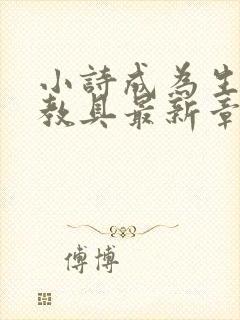 小詩成為生
教具最新章
傅博